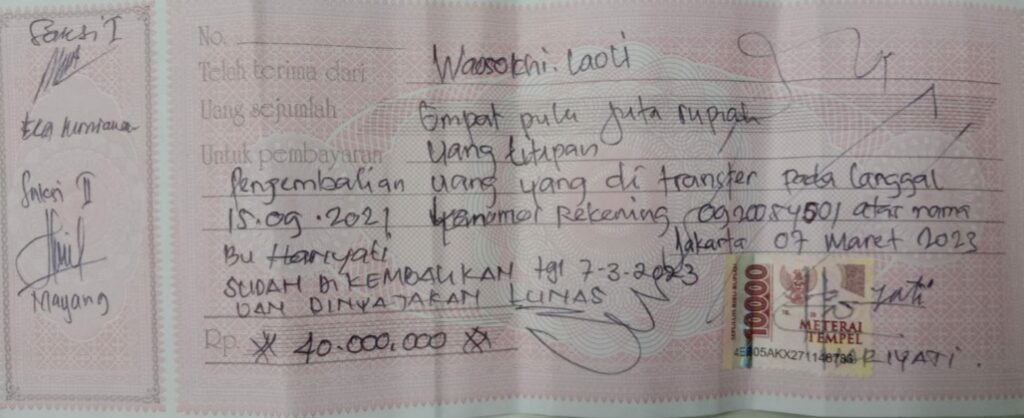 Saksi I
Saksi II
Mayang
No.
Telah terima dari Waosokhi. Laoli
Uang sejumlah Empat pulu juta rupiah
Untuk pembayaran Uang titipan
Pengembalian uang yang di transfer pada tanggal
15.09.2021 nomor Rekening 0920084501 atas nama
Bu Hariyati
Jakarta 07 Maret 2023
SUDAH DI KEMBALIKAN tgl 7-3-2023
DAN DINYATAKAN LUNAS
Rp. 40.000.000
10000
METERAI
TEMPEL
HARIYATI.